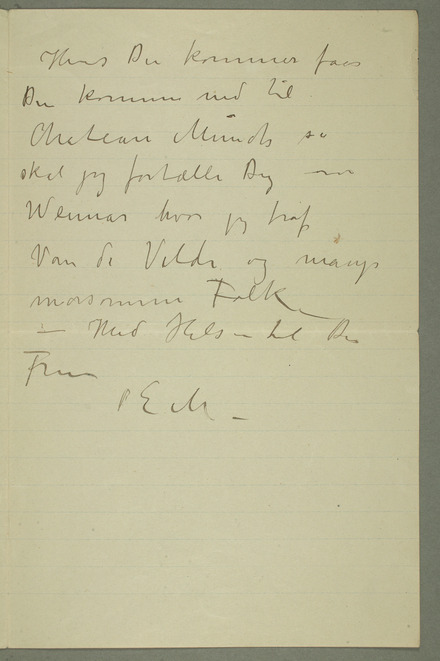 Hvis Du kommer faar
Du komme ned til
Chateau Munch så
skal jeg fortælle Dig om
Weimar hvor jeg traf
Van de Velde og mange
morsomme Folk –
– Med Hilsen til Din
Frue
EM –